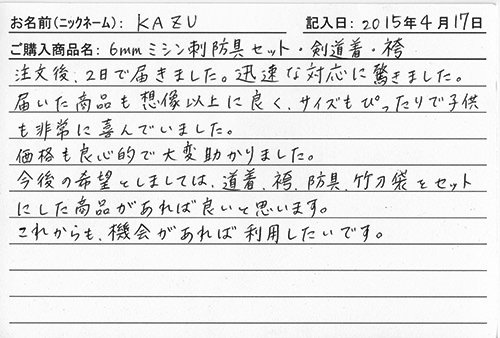 お名前(ニックネーム): KAZU 記入日: 2015年4月17日
ご購入商品名: 6mmミシン刺防具セット・剣道着・袴
注文後、2日で届きました。迅速な対応に驚きました。
届いた商品も想像以上に良く、サイズもぴったりで子供
も非常に喜んでいました。
価格も良心的で大変助かりました。
今後の希望としましては、道着、袴、防具、竹刀袋をセット
にした商品があれば良いと思います。
これからも、機会があれば利用したいです。